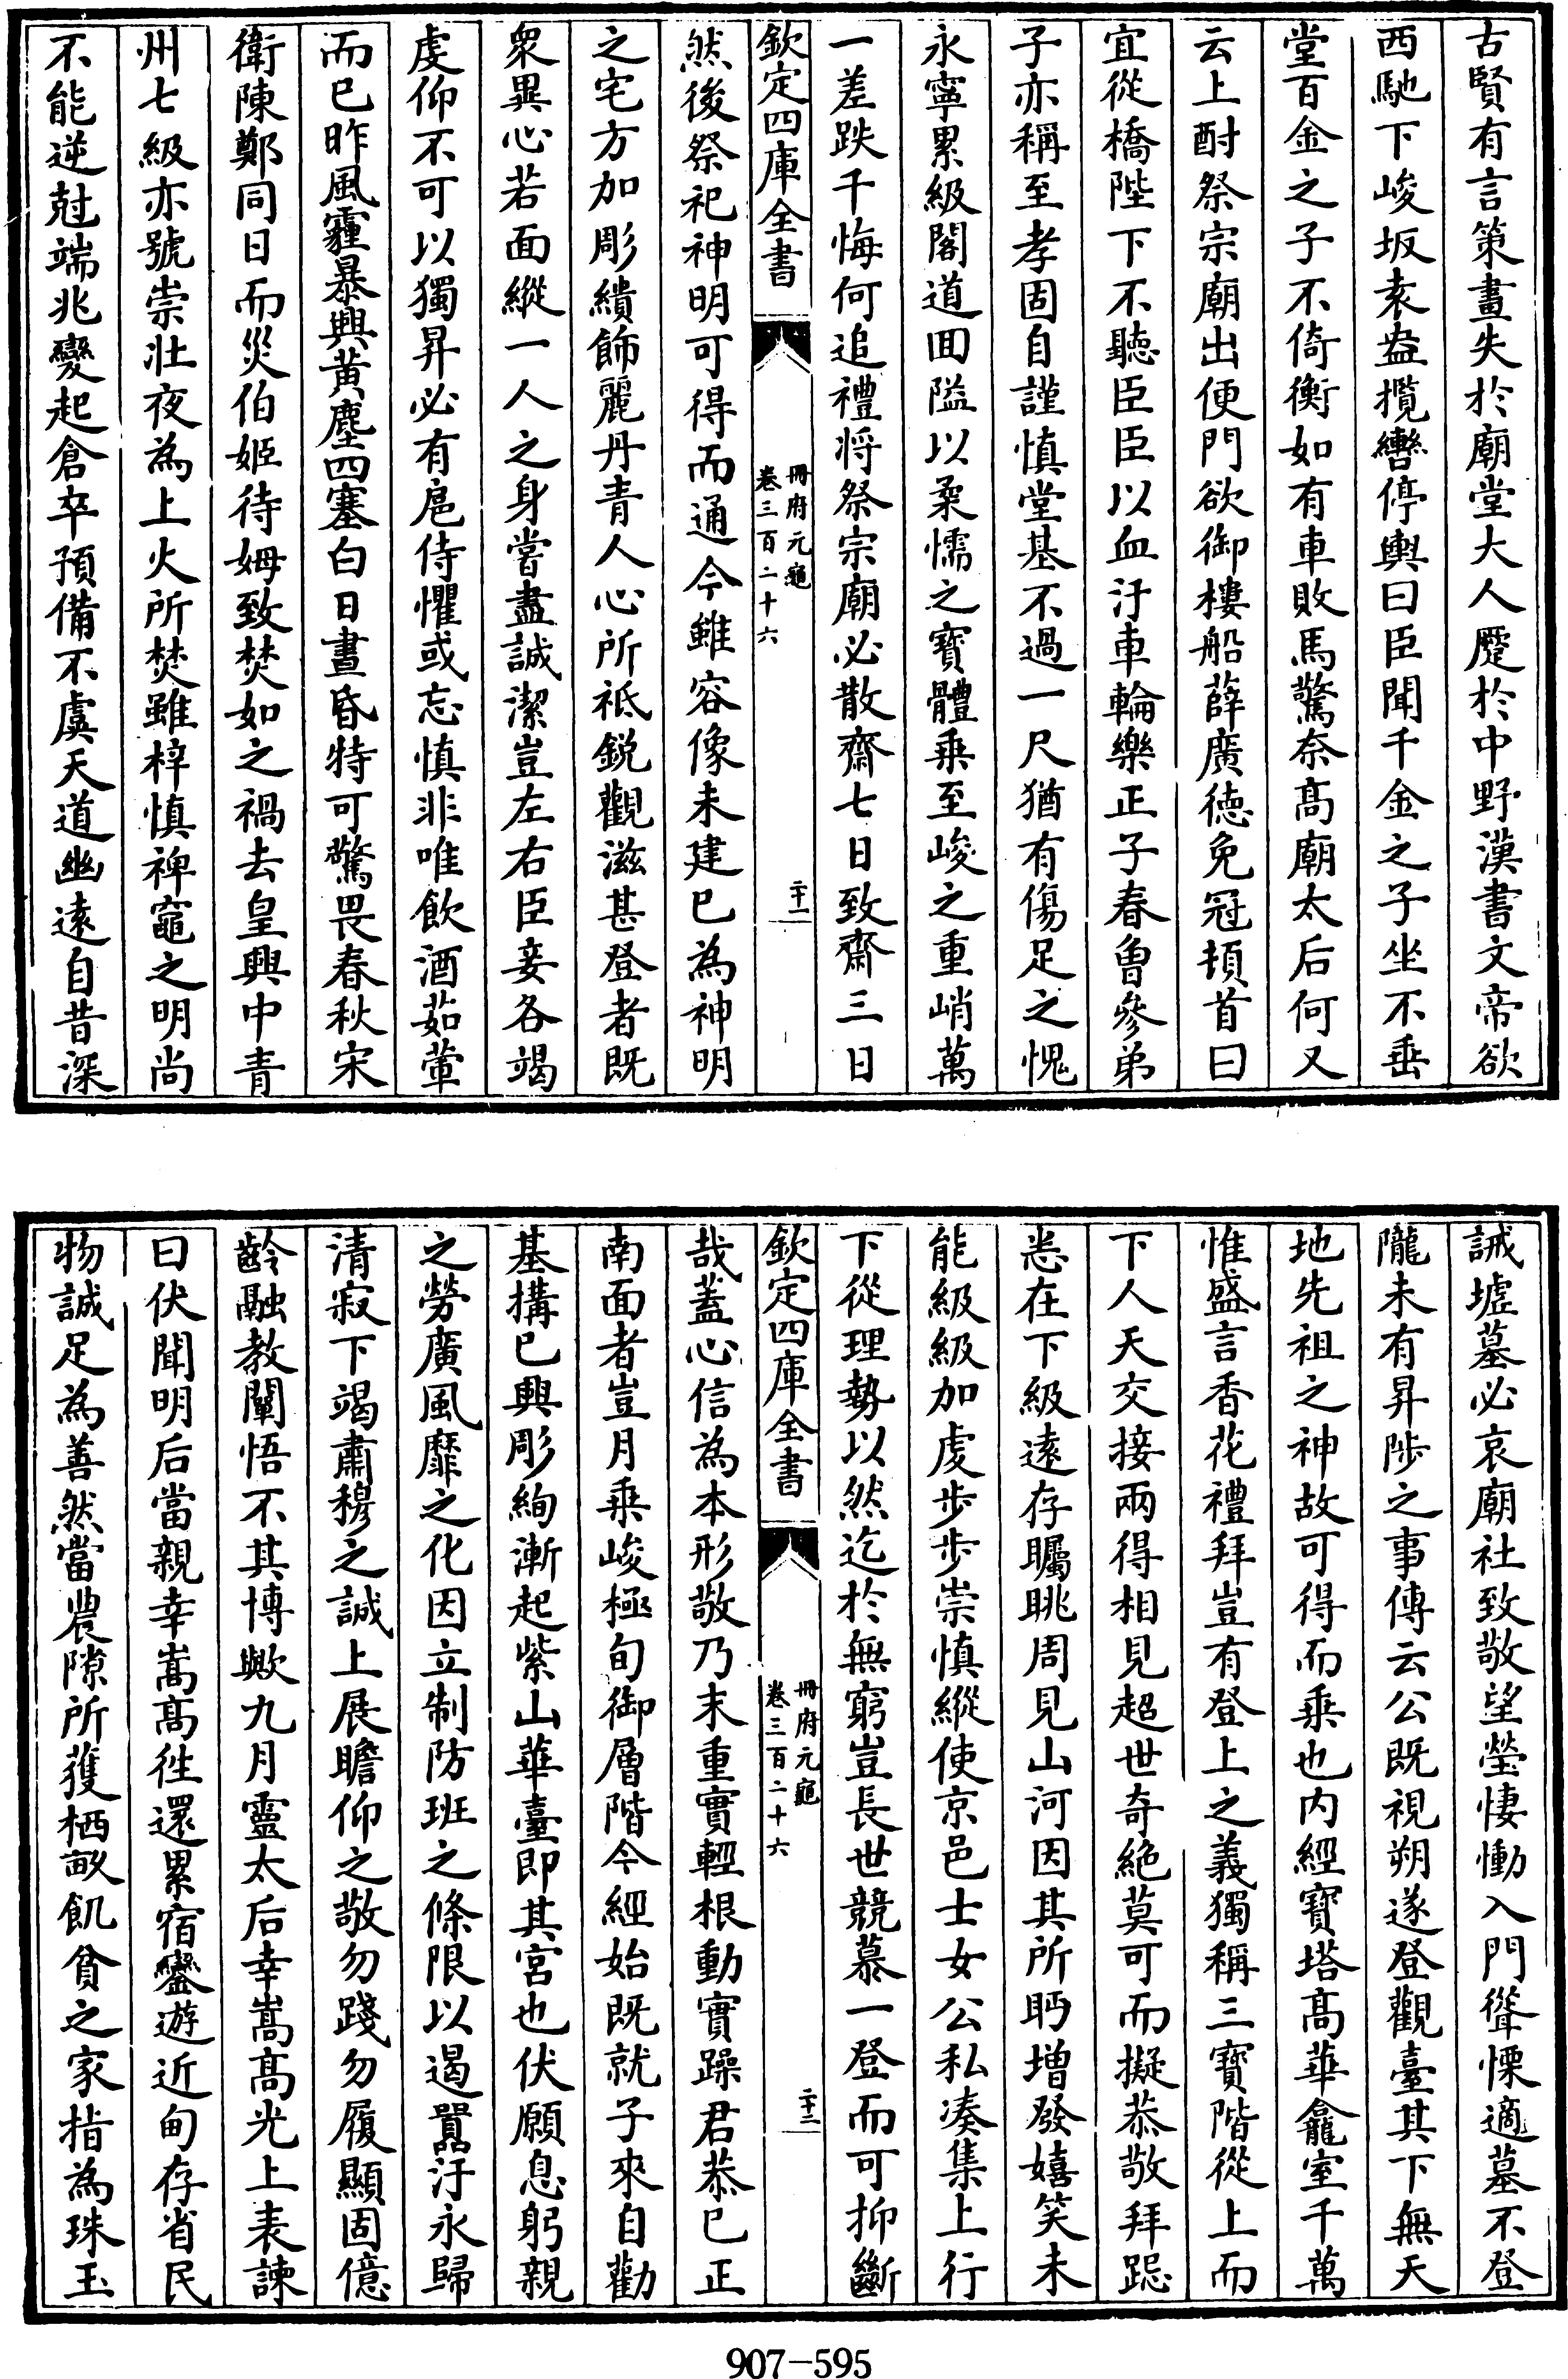 古賢有言策畫失於廟堂大人蹷於中野漢書文帝欲
西馳下峻坂袁盎攬轡停輿曰臣聞千金之子坐不垂
堂百金之子不倚衡如有車敗馬驚奈髙廟太后何又
云上酎祭宗廟出便門欲御樓船薛廣徳免冠頓首曰
宜從橋陛下不聽臣臣以血汙車輪樂正子春曾參弟
子亦稱至孝固自謹慎堂基不過一尺猶有傷足之愧
永寧累級閣道囬隘以柔懦之寳體乗至峻之重峭萬
一差跌千悔何追禮将祭宗廟必散齋七日致齋三日
欽定四庫全書
冊府元龜
卷三百二十六
二十一
然後祭祀神明可得而通今雖容像未建已為神明
之宅方加彫繢飾麗丹青人心所祗鋭觀滋甚登者既
衆異心若面縱一人之身嘗盡誠潔豈左右臣妾各竭
䖍仰不可以獨昇必有扈侍懼或忘慎非唯飲酒茹葷
而已昨風霾暴興黄塵四塞白日晝昏特可驚畏春秋宋
衛陳鄭同日而災伯姬待姆致焚如之禍去皇興中青
州七級亦號崇壮夜為上火所焚雖梓慎禆竈之明尚
不能逆尅端兆變起倉卒預備不虞天道幽逺自昔深
誡墟墓必哀廟社致敬望塋悽慟入門聳慄適墓不登
隴未有昇陟之事傳云公既視朔遂登觀臺其下無天
地先祖之神故可得而乗也内經寳塔髙華龕室千萬
惟盛言香花禮拜豈有登上之義獨稱三寳階從上而
下人天交接兩得相見超世奇絶莫可而擬恭敬拜跽
悉在下級逺存矚眺周見山河因其所眄增發嬉笑未
能級級加䖍步步崇慎縱使京邑士女公私凑集上行
下從理勢以然迄於無窮豈長世競慕一登而可抑斷
欽定四庫全書
冊府元龜
卷三百二十六
二十二
哉葢心信為本形敬乃末重實輕根動實躁君恭已正
南面者豈月乗峻極旬御層階今經始既就子來自勸
基搆已興彫絢漸起紫山華臺即其宮也伏願息躬親
之勞廣風靡之化因立制防班之條限以遏囂汙永歸
清寂下竭肅穆之誠上展瞻仰之敬勿踐勿履顯固億
齡融教闡悟不其博歟九月靈太后幸嵩髙光上表諫
曰伏聞明后當親幸嵩髙徃還累宿鑾遊近甸存省民
物誠足為善然當農隙所獲栖畝飢貧之家指為珠玉
907-595